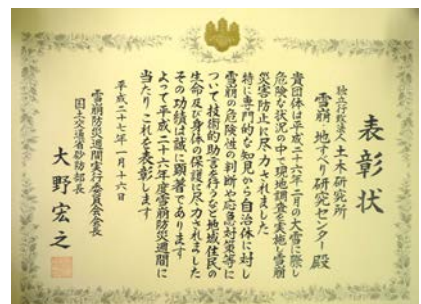 表彰状
独立行政法人 土木研究所
雪崩・地すべり研究センター 殿
貴団体は平成二十六年二月の大雪に際し
危険な状況の中で現地調査を実施し雪崩
災害防止に尽力されました
特に専門的な知見から自治体に対し
雪崩の危険性の判断や応急対策等に
ついて技術的助言を行うなど地域住民の
生命及び身体の保護に尽力されました
その功績は誠に顕著であります
よって平成二十六年度雪崩防災週間に
当たりこれを表彰します
平成二十七年一月十六日
雪崩防災週間実行委員会会長
国土交通省砂防部長
大野宏之